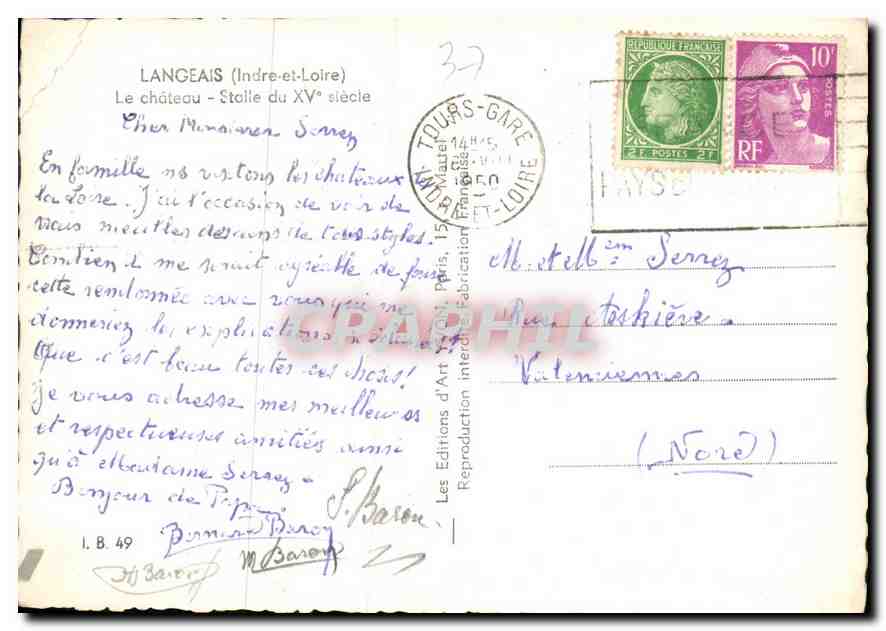 LANGEAIS (Indre-et-Loire)
Le château - Stalle du XVe siècle
Cher Monsieur Serrez
En famille ns visitons les chateaux de
la Loire. J'ai l'occasion de voir de
vieux meubles de tous styles.
Combien il me serait agréable de faire
cette randonnée avec vous qui me
donneriez les explications
Que c'est beau toutes ces choses!
Je vous adresse mes meilleures
et respectueuses amitiés ainsi
qu'à Madame Serrez.
Bonjour de Papa
Bernard Baron
S. Baron
M Baron
Baron
I. B. 49
37
Les Editions d'Art YVON, Paris, 15, R. Martel
Reproduction interdite, Fabrication Française
TOURS-GARE
14H15
1950
INDRE-ET-LOIRE
REPUBLIQUE FRANÇAISE
2F POSTES 2F
10F
POSTES
RF
PAYS
M. et Mem Serrez
Rue Askièvre.
Valenciennes
(Nord)
CPAPHIL